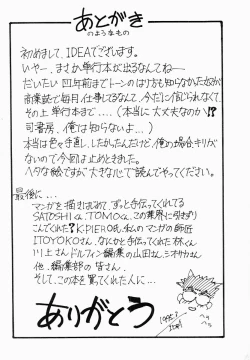 あとがき
のようなもの
初めまして、IDEAでございます。
いやー、まさか単行本が出るなんてねー
だいたい 四年前までトーンのはり方も知らなかった奴が
商業誌で毎月仕事してるなんて、今だに信じられなくて
その上単行本まで‥‥(本当に大丈夫なのか!?
司書房、俺は知らないよ…)
本当は色々手直ししたかったんだけど、俺の場合キリが
ないので今回は止めときました。
ヘタな絵ですが大きな心で読んでやってください。
最後に…
マンガを描き始めて、ずっと手伝ってくれてる
SATOSHIくん、TOMOくん、この業界に引きずり
こんでくれた?K.PIERO氏、私のマンガの師匠
ITOYOKOさん、なにかと手伝ってくれた林くん
川上さん、ドルフィン編集の山田さん、シオサカさん
他、編集部の皆さん、
そして、この本を買ってくれた人に…
ありがとう